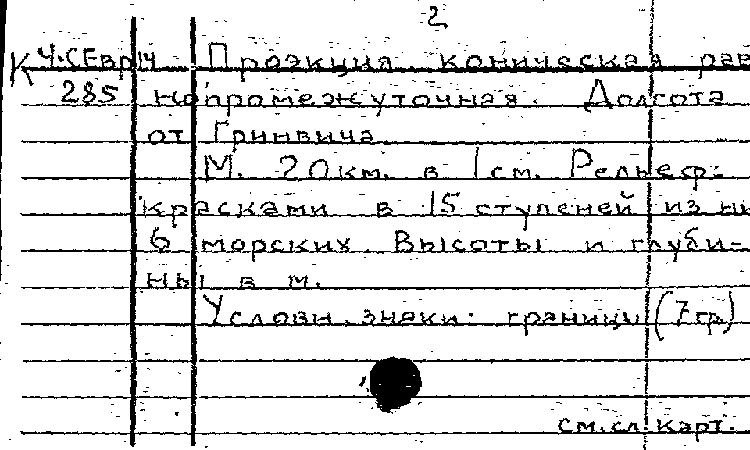 2
К Ч.СЕвр/4 Проэкция коническая рав
285 нопромежуточная. Долгота
от Гринвича
М. 20км. в 1см. Рельеф:
красками в 15 ступеней из ни
6 морских. Высоты и глуби-
ны в м.
Условн. знаки: границы (7 гр)
см.сл.карт.